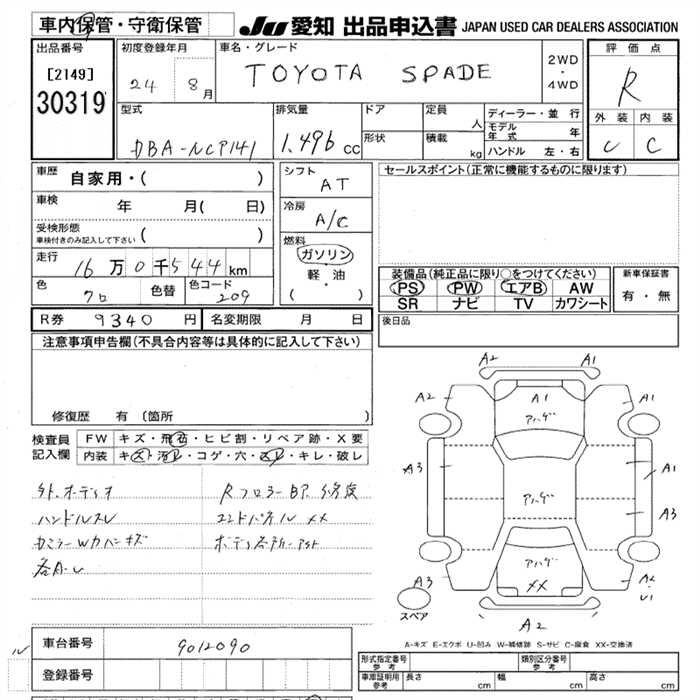 車内保管・守衛保管
JU 愛知 出品申込書 JAPAN USED CAR DEALERS ASSOCIATION
出品番号
[2149]
30319
初度登録年月
24 8月
車名・グレード
TOYOTA SPADE
2WD
・
4WD
評価点
R
外装 内装
C
型式
DBA-NCP141
排気量
1.496 cc
ドア
形状
定員 人
積載 kg
ディーラー・並行
モデル年式 年
ハンドル 左・右
車歴
自家用・( )
車検 年 月( 日)
受検形態
車検付きのみ記入して下さい ( )
走行 16万0千544km
色 クロ 色替 色コード 209
シフト
AT
冷房
A/C
燃料
ガソリン
軽・油
( )
セールスポイント(正常に機能するものに限ります)
装備品(純正品に限り○をつけてください)
PS PW エアB AW
SR ナビ TV カワシート
新車保証書
有・無
R券 9340円 名変期限 月 日
後日品
注意事項申告欄(不具合内容等は具体的に記入して下さい)
修復歴 有 (箇所 )
検査員記入欄
FW キズ・飛石・ヒビ割・リペア跡・X要
内装 キズ・汚レ・コゲ・穴・スレ・キレ・破レ
外、オーディオ
ハンドルスレ
Rフロアー BP 修復
エンドパネル XX
A2 A1
A2 A1 A1
アハ゛ゲ
A3 A1
アハ゛ゲ
A3
アハ゛ゲ
A3 XX A2
U1
スペア
A2
A-キズ E-エクボ U-凹み W-補修跡 S-サビ C-腐食 XX-交換済
車台番号 9012090
登録番号
形式指定番号 参考
類別区分番号 参考
車庫証明用 参考 長さ cm 幅 cm 高さ cm